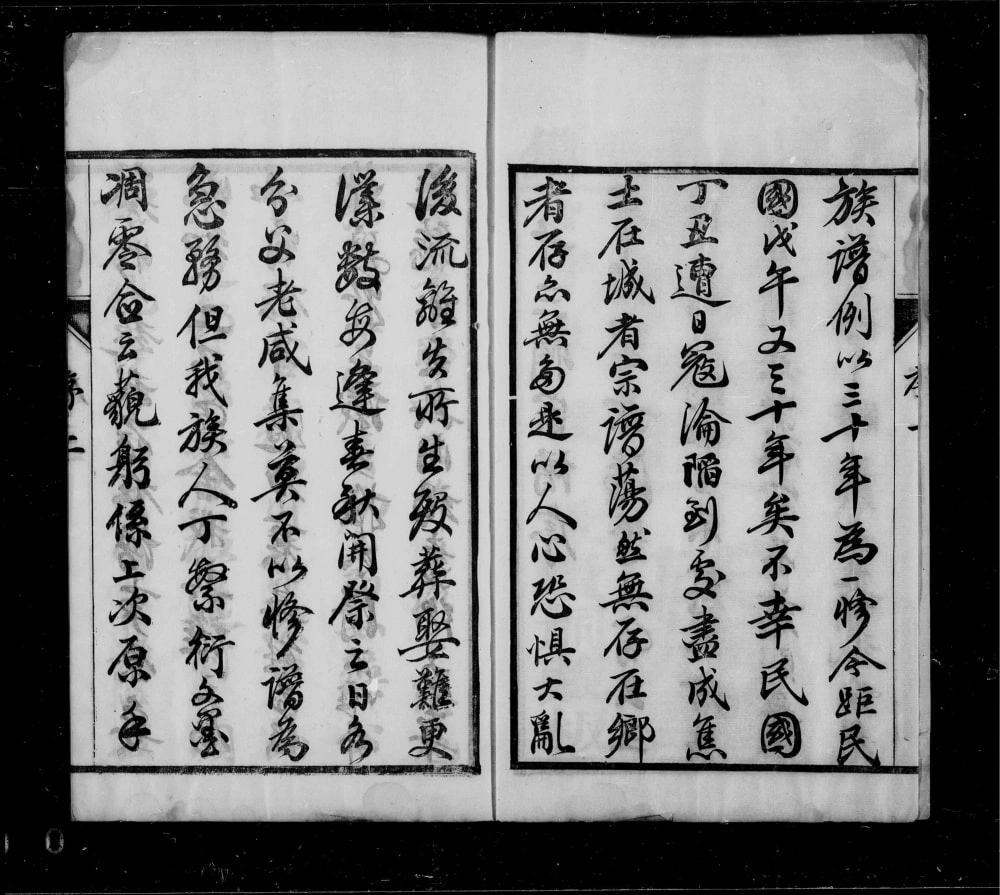 族譜例以三十年為一修今距民
國戊午又三十年矣不幸民國
丁丑遭日寇淪陷到處盡成焦
土在城者宗譜蕩然無存在鄉
者存亦無多是以人心恐惧大亂
後流離失所生殁葬娶難更
僕數每逢春秋開祭之日各
分父老咸集莫不以修譜為
急務但我族人丁繁衍文墨
凋零僉云藐躬係上次原手
序二